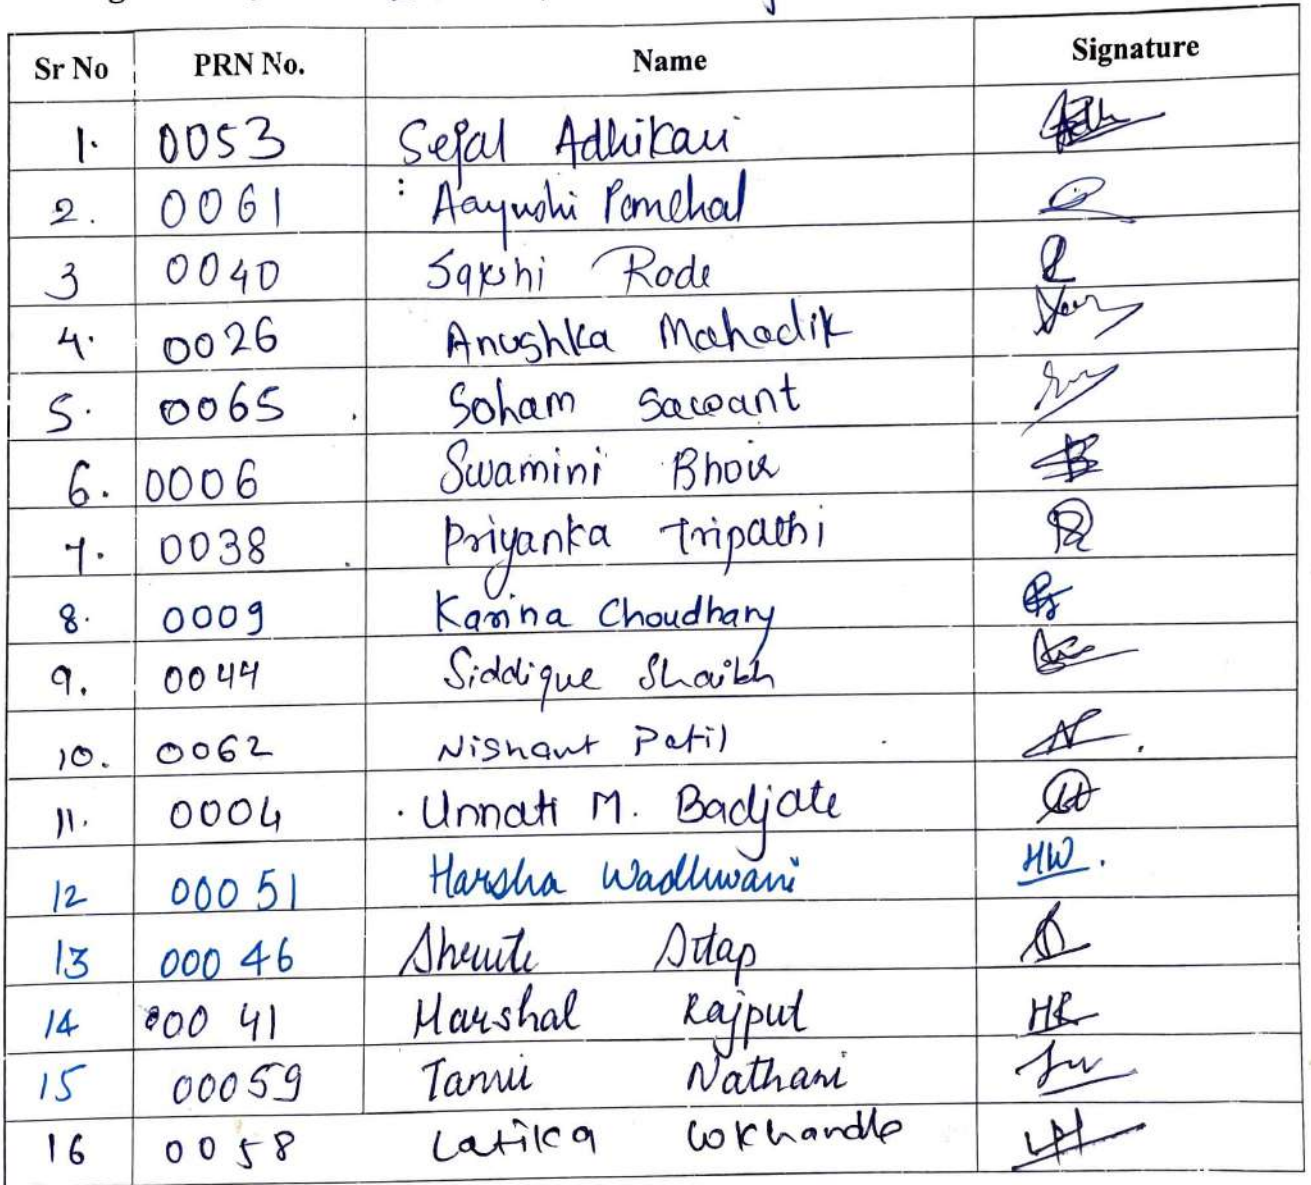 Sr No PRN No. Name Signature
1. 0053 Sejal Adhikari
2. 0061 Aayushi Panchal
3 0040 Sakshi Rode
4. 0026 Anushka Mahadik
5. 0065 Soham Sawant
6. 0006 Swamini Bhoir
7. 0038 Priyanka Tripathi
8. 0009 Karina Choudhary
9. 0044 Siddique Shaikh
10. 0062 Nishant Patil
11. 0004 Unnati M. Badjate
12 00051 Harsha Wadhwani HW.
13 00046 Shruti
14 0041 Harshal Rajput HR
15 00059 Tanvi Nathani
16 0058 Latika Lokhande